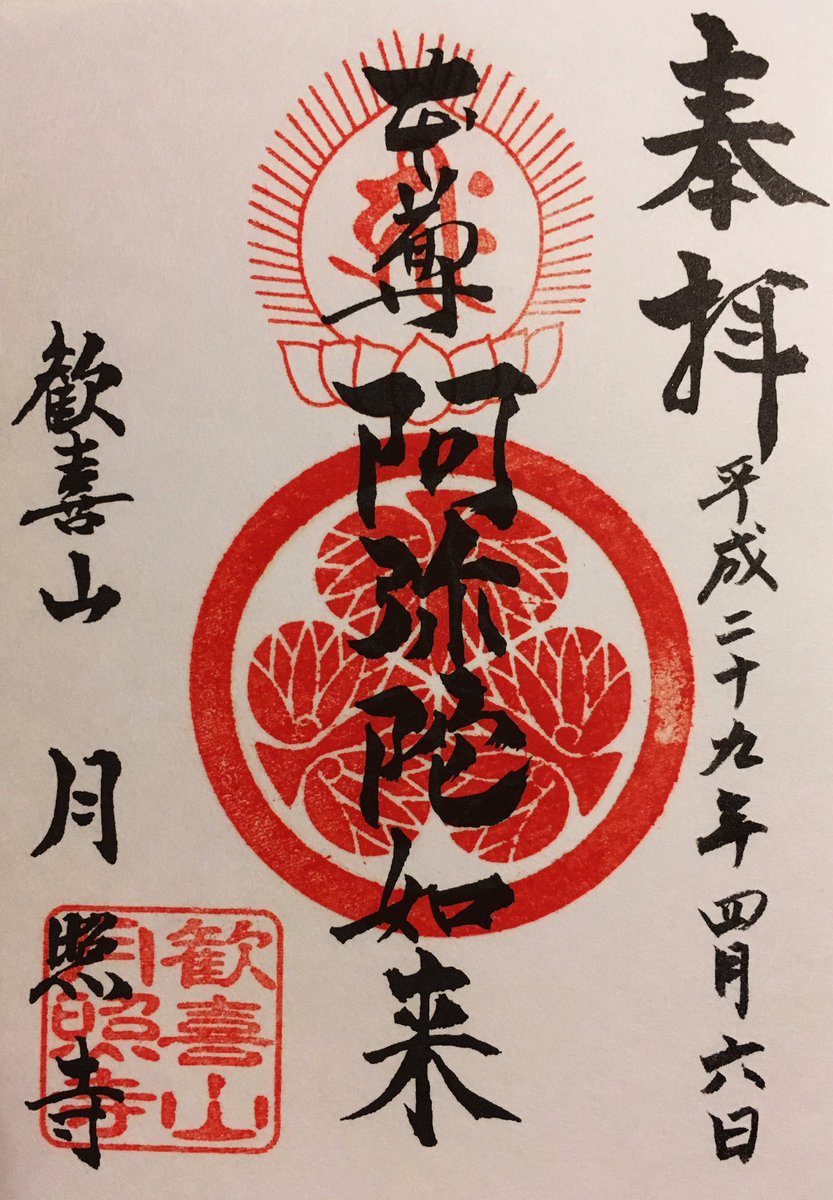 奉拝
平成二十九年四月六日
本尊 阿弥陀如来
歓喜山 月照寺
歓喜山
月照寺